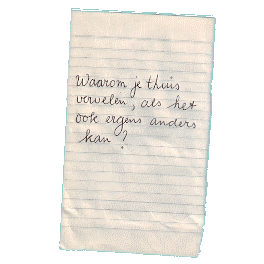 Waarom je thuis
vervelen, als het
ook ergens anders
kan?